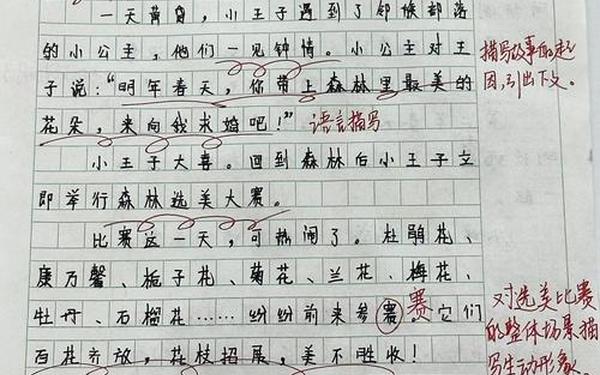 一天黄昏，小王子遇到了邻候部落
的小公主，他们一见钟情。小公主对王
子说：“明年春天，你带上森林里最美的
花朵，来向我求婚吧！”语言描写
描写故事的起
因，引出下文。
小王子大喜。回到森林后小王子立
即举行森林选美大赛。
比赛这一天，可热闹了。杜鹃花、
康乃馨、栀子花、菊花、兰花、梅花、
牡丹、石榴花……纷纷前来参赛。它们
赛
百花齐放，花枝招展，美不胜收！
对选美比赛
的整体场景描
写生动形象